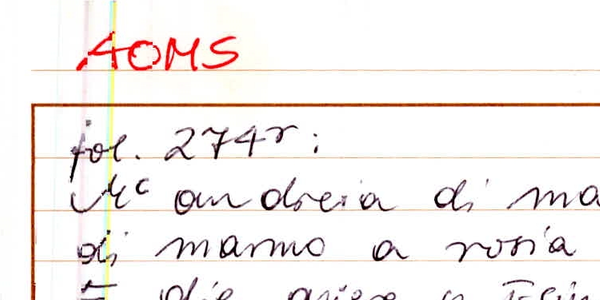 AOMS
fol. 274r:
Mc andreia di ma
di marmo a rosia